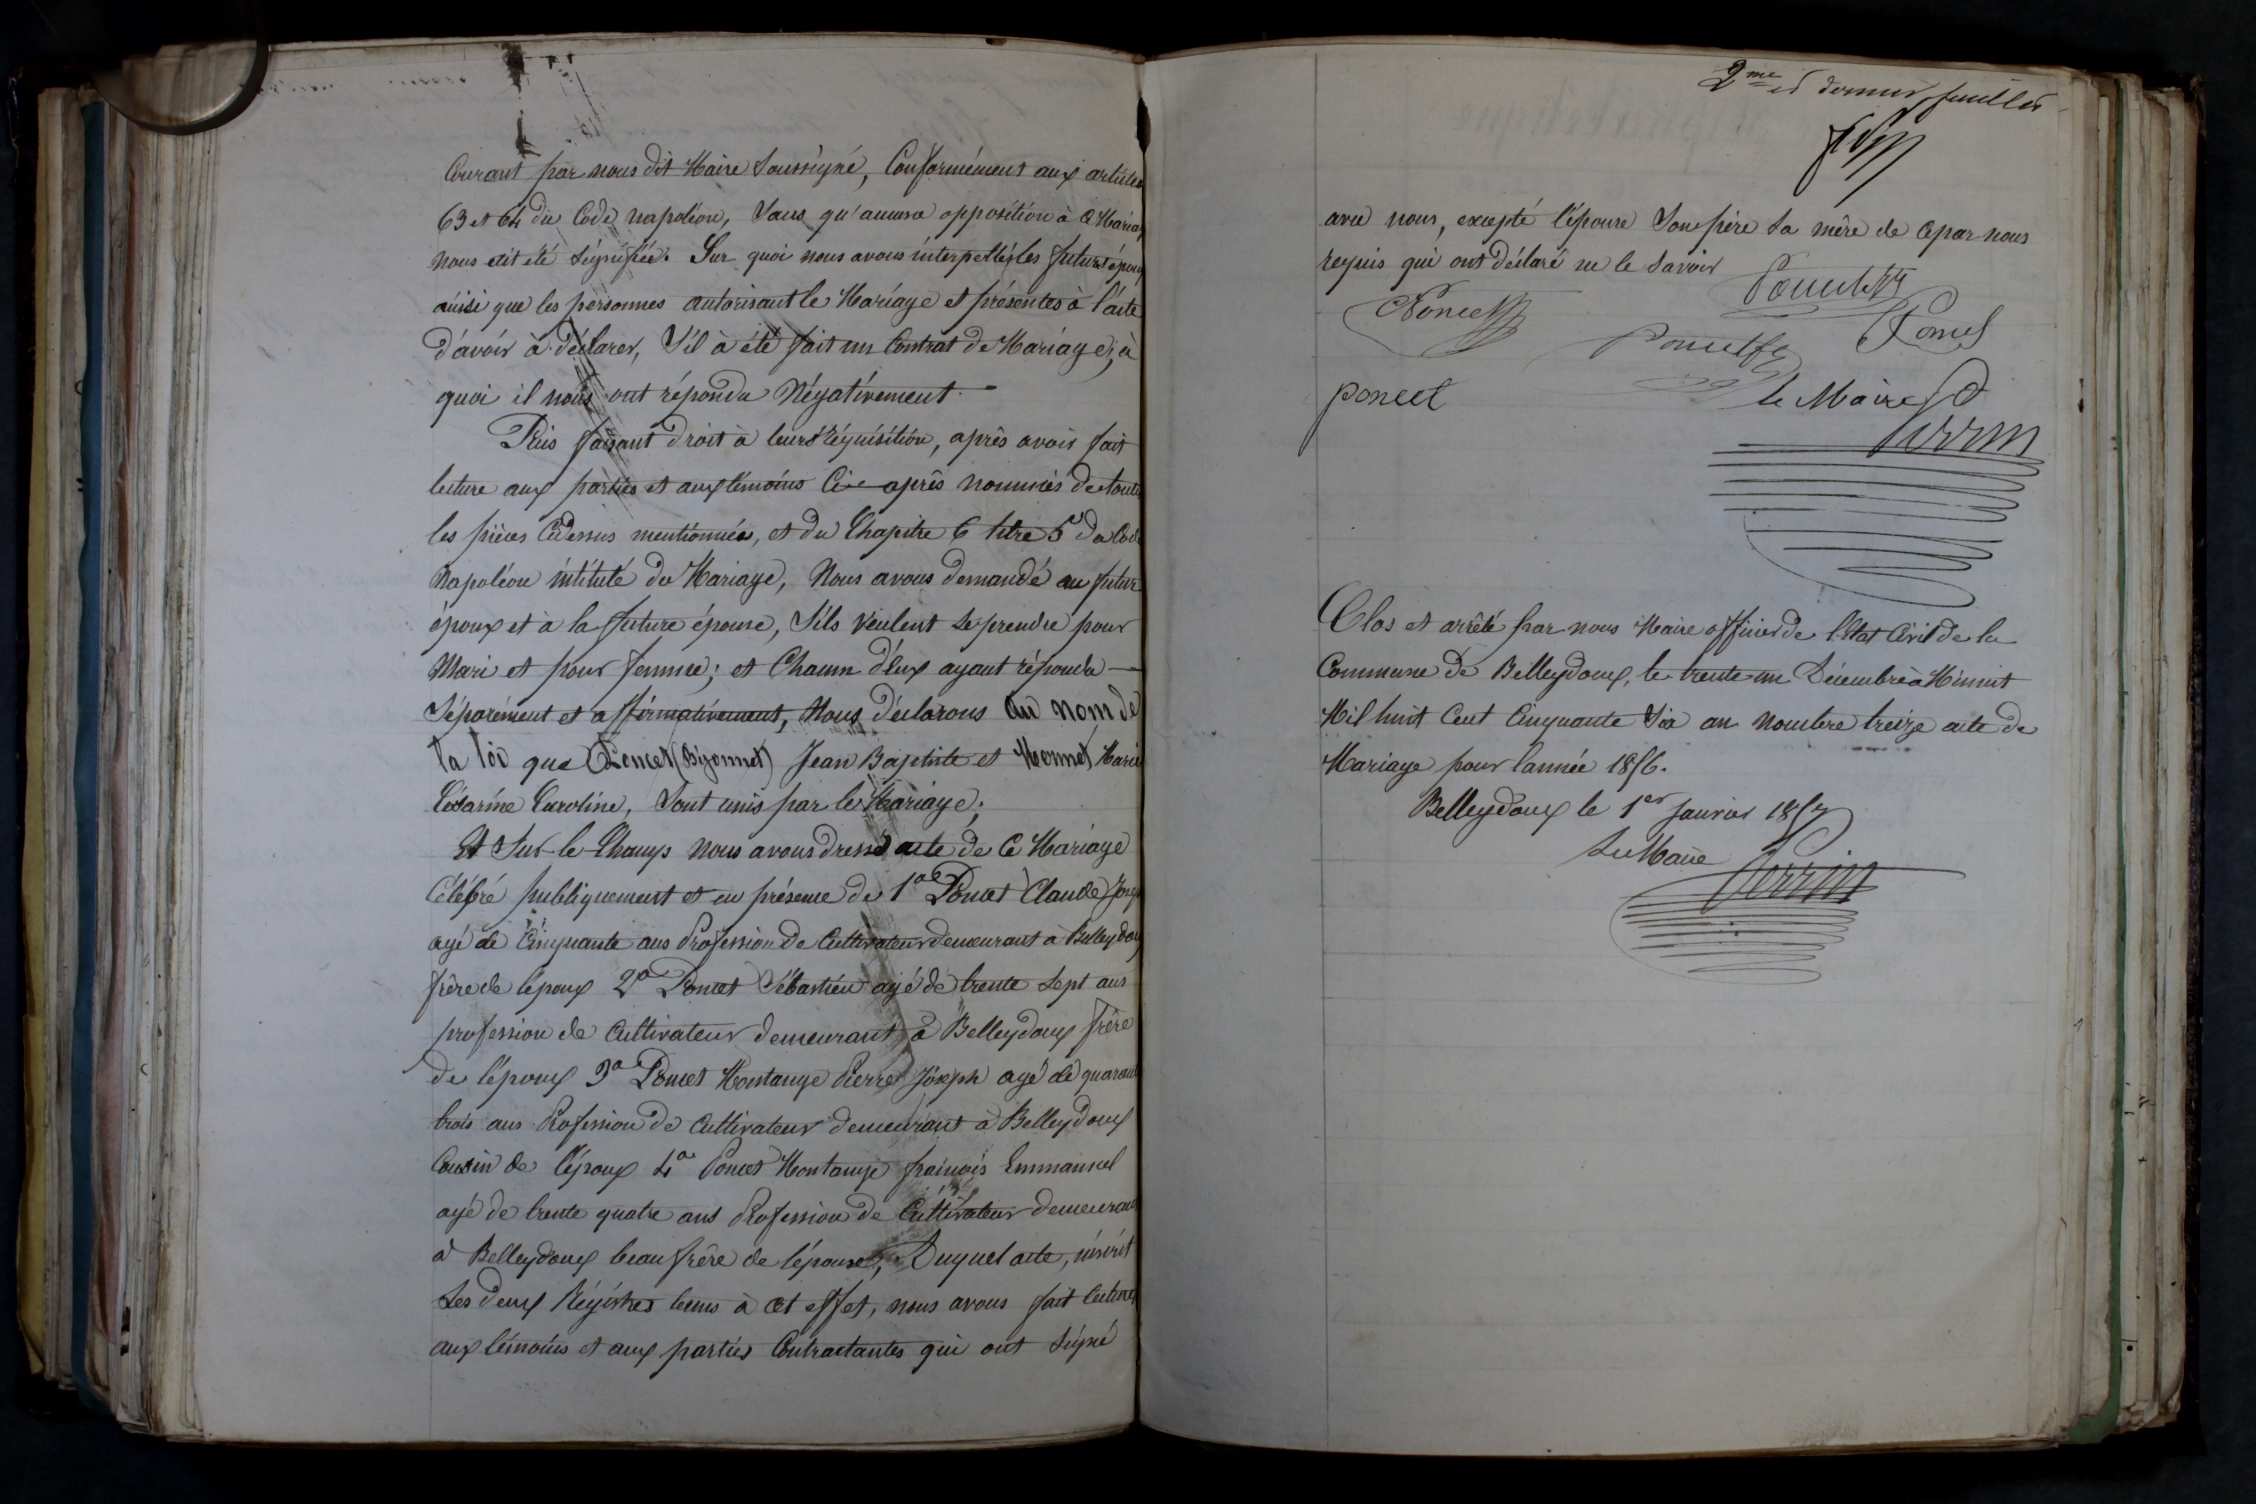 Courant par nous dit Maire Soussigné, Conformément aux articles
63 et 64 du Code Napoléon, Sans qu'aucune opposition à ce Mariage
nous eut été Signifiée. Sur quoi nous avons interpellé les futurs époux
ainsi que les personnes autorisant le Mariage et présentes à l'acte
d'avoir à déclarer, S'il à été fait un Contrat de Mariage; à
quoi il nous ont répondu Négativement.
Puis faisant droit à leur réquisition, après avoir fait
lecture aux parties et aux témoins Ci-après nommés de toutes
les pièces Cidessus mentionnées, et du Chapitre 6 titre 5 du Code
Napoléon intitulé du Mariage, Nous avons demandé au futur
époux et à la future épouse, S'ils veulent Se prendre pour
Mari et pour femme; et Chacun d'eux ayant répondu
Séparément et affirmativement, Nous déclarons au nom de
la loi que Poncet (Bizonnet) Jean Baptiste et Monnet Marie
Césarine Caroline, Sont unis par le Mariage;
Et Sur-le-Champ nous avons dressé acte de Ce Mariage
Célébré publiquement et en présence de 1o Poncet Claude Joseph
agé de Cinquante ans Profession de Cultivateur demeurant à Belleydoux
frère de l'époux 2o Poncet Sébastien agé de trente Sept ans
profession de Cultivateur demeurant à Belleydoux frère
de l'époux 3o Poncet Montange Pierre Joseph agé de quarante
trois ans Profession de Cultivateur demeurant à Belleydoux
Cousin de l'époux 4o Poncet Montange françois Emmanuel
agé de trente quatre ans Profession de Cultivateur demeurant
à Belleydoux beau frère de l'épouse, Duquel acte, inscrit
Les deux Régistres tenus à cet effet, nous avons fait lecture
aux témoins et aux parties Contractantes qui ont Signé
2me et dernier feuillet
avec nous, excepté l'épouse Son père Sa mère de ce par nous
requis qui ont déclaré ne le Savoir
Poncet
Poncet
Poncet
Poncet
poncet
le Maire
Perrin
Clos et arrêté par nous Maire officier de l'Etat Civil de la
Commune de Belleydoux, le trente un Décembre à Minuit
Mil huit Cent Cinquante Six au nombre treize acte de
Mariage pour l'année 1856.
Belleydoux le 1er Janvier 1857
Le Maire
Perrin